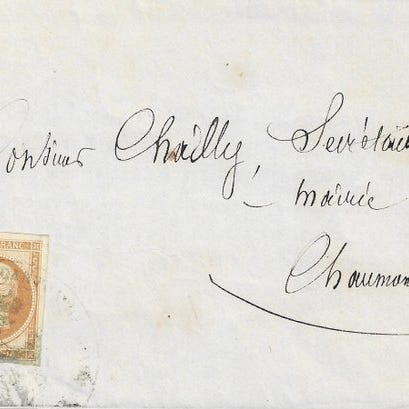 Monsieur Chailly, Secrétai
mairie
Chaumon
FRANC